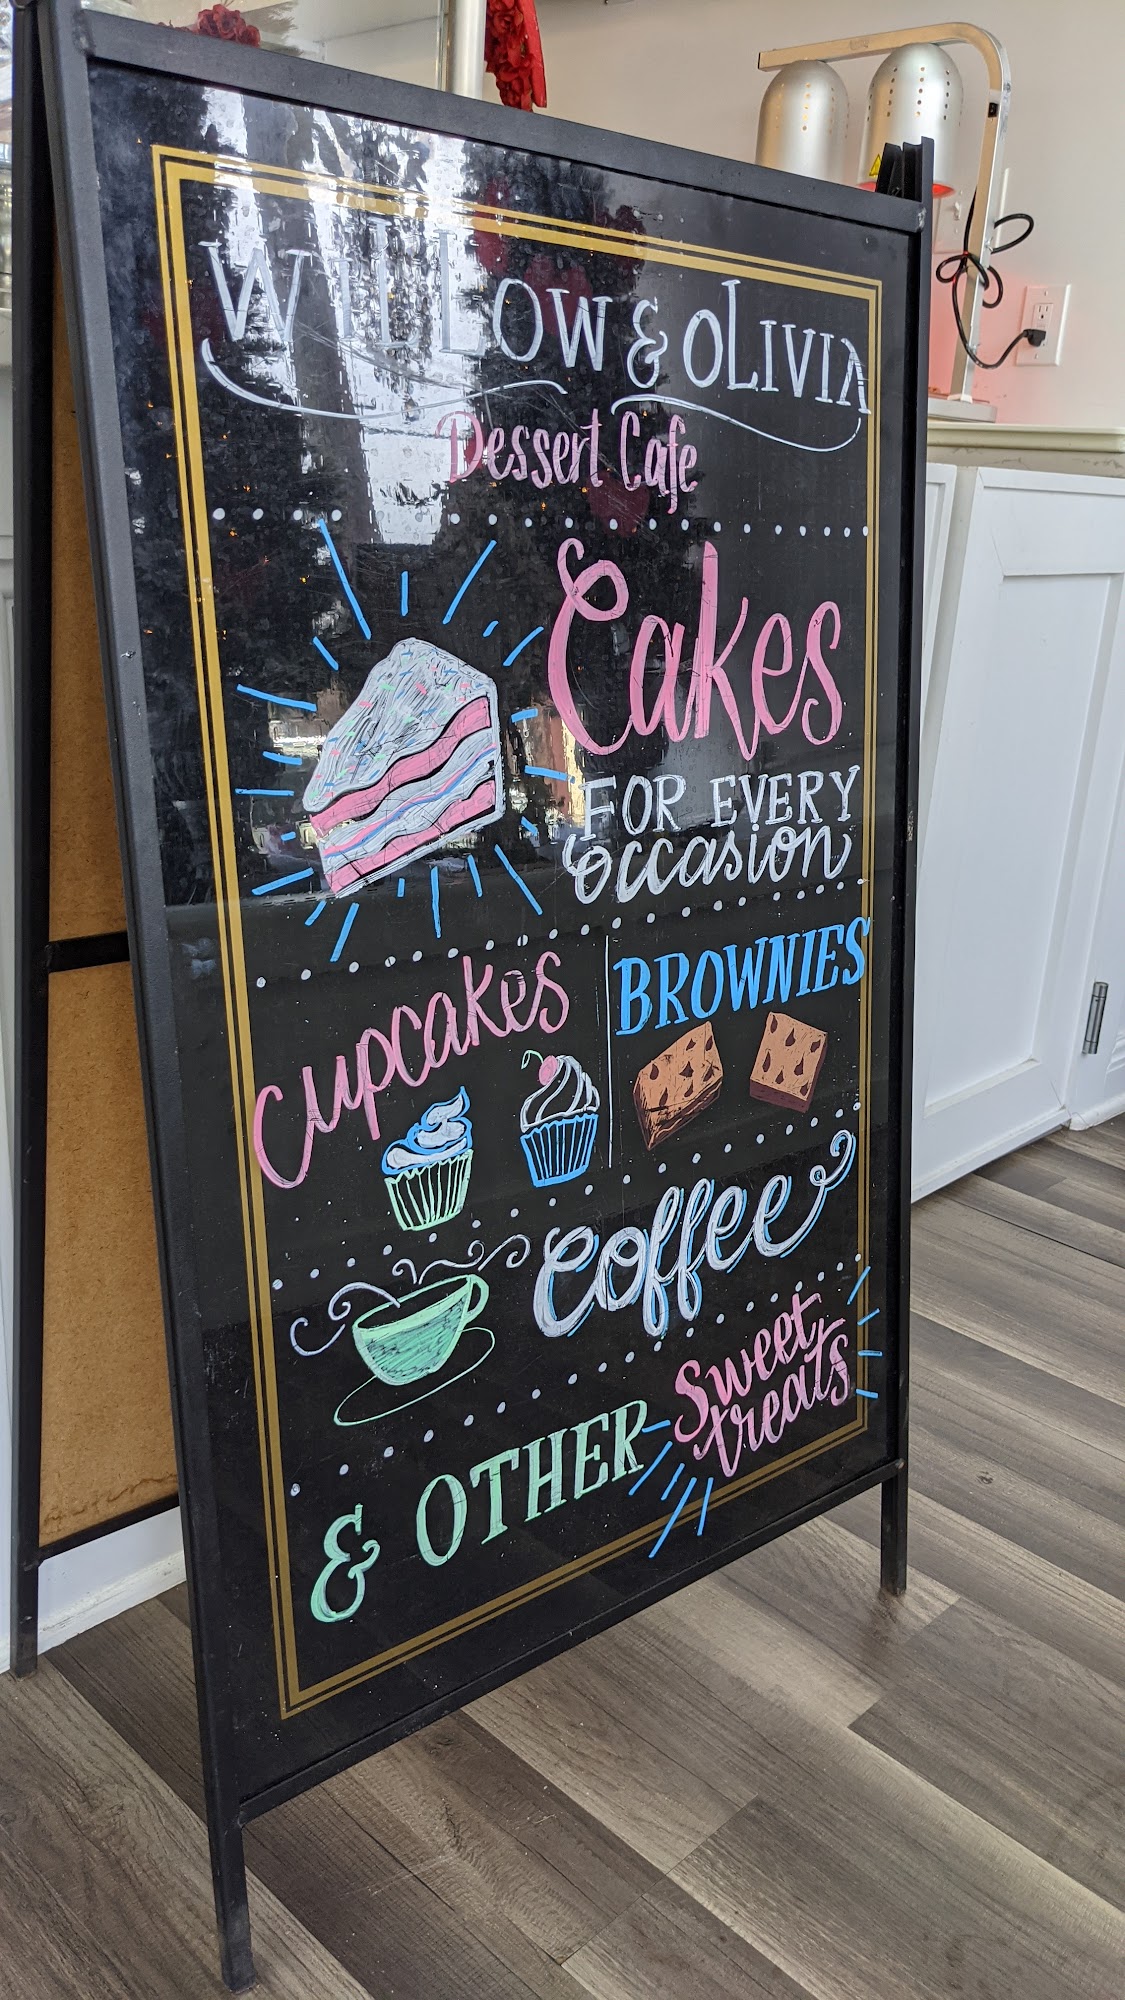 WILLOW & OLIVIA
Dessert Cafe
Cakes
FOR EVERY
occasion
cupcakes
BROWNIES
coffee
& OTHER
sweet
treats